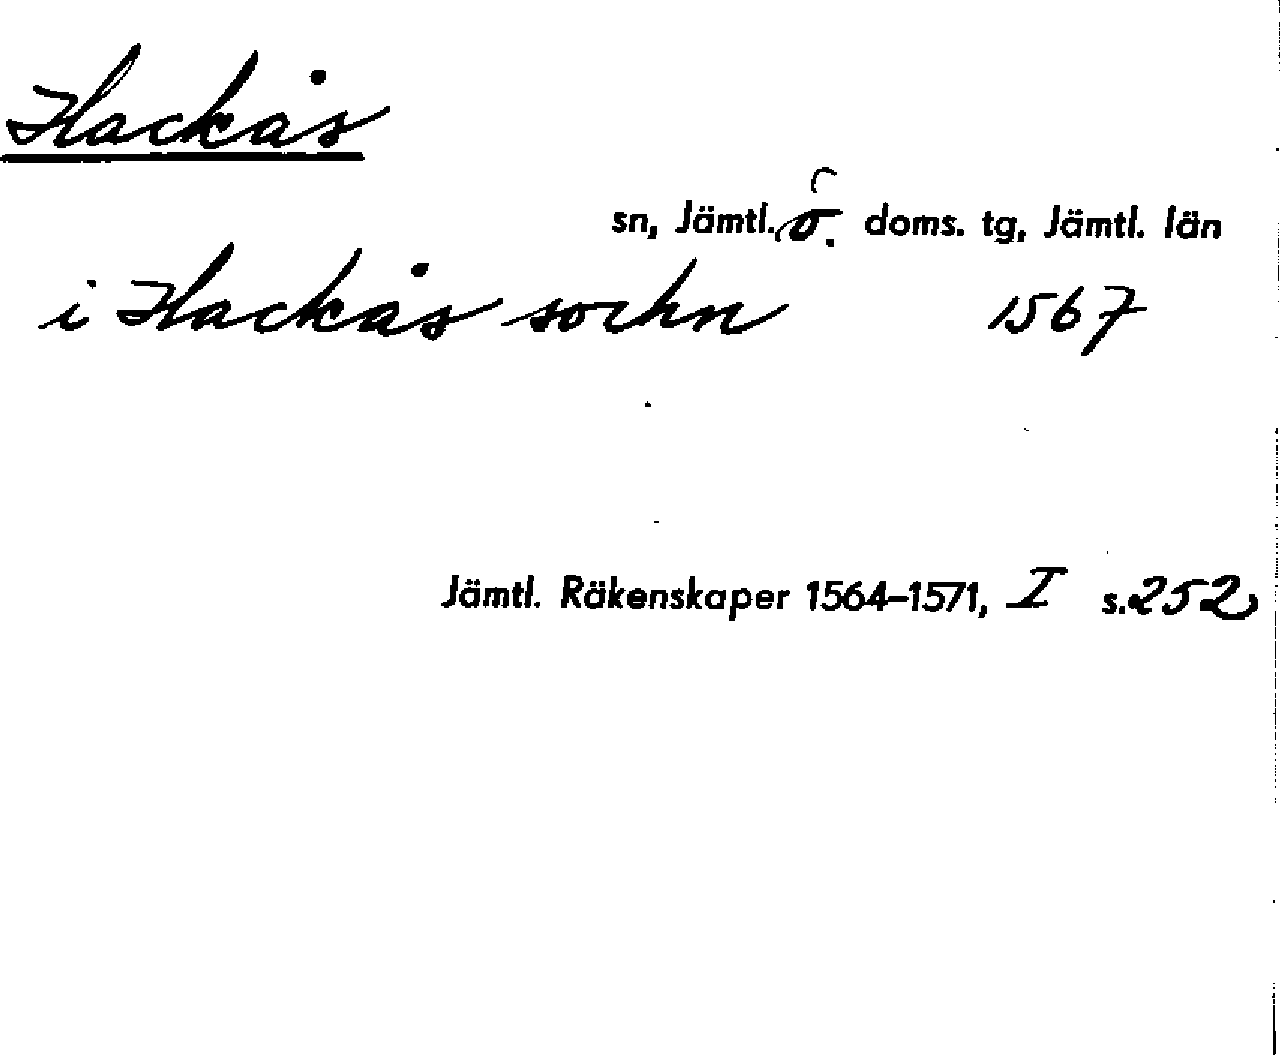 Hackås
sn, Jämtl. ö. doms. tg, Jämtl. län
i Hackås sochn 1567
Jämtl. Räkenskaper 1564–1571, I s. 252